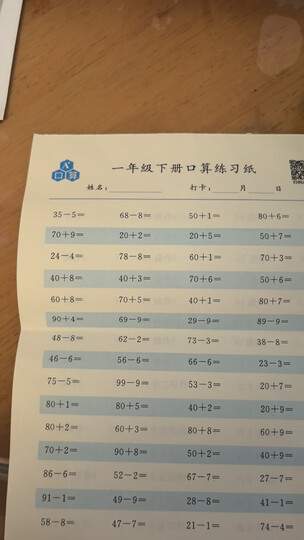 X
口算
一年级下册口算练习纸
姓名：__________ 打卡：______月______日
35－5＝ 68－8＝ 50＋1＝ 80＋6＝
70＋9＝ 20＋2＝ 20＋5＝ 50＋7＝
24－4＝ 78－8＝ 60＋1＝ 70＋3＝
40＋8＝ 40＋3＝ 70＋6＝ 50＋6＝
60＋8＝ 70＋5＝ 40＋1＝ 80＋7＝
90＋4＝ 69－9＝ 29－9＝ 89－9＝
48－8＝ 62－2＝ 73－3＝ 38－8＝
46－6＝ 56－6＝ 66－6＝ 23－3＝
75－5＝ 99－9＝ 53－3＝ 20＋7＝
80＋1＝ 80＋5＝ 40＋2＝ 20＋9＝
80＋2＝ 60＋3＝ 80＋8＝ 60＋9＝
70＋2＝ 90＋8＝ 50＋2＝ 40＋9＝
86－6＝ 52－2＝ 67－7＝ 27－7＝
91－1＝ 49－9＝ 28－8＝ 41－1＝
58－8＝ 47－7＝ 21－1＝ 74－4＝